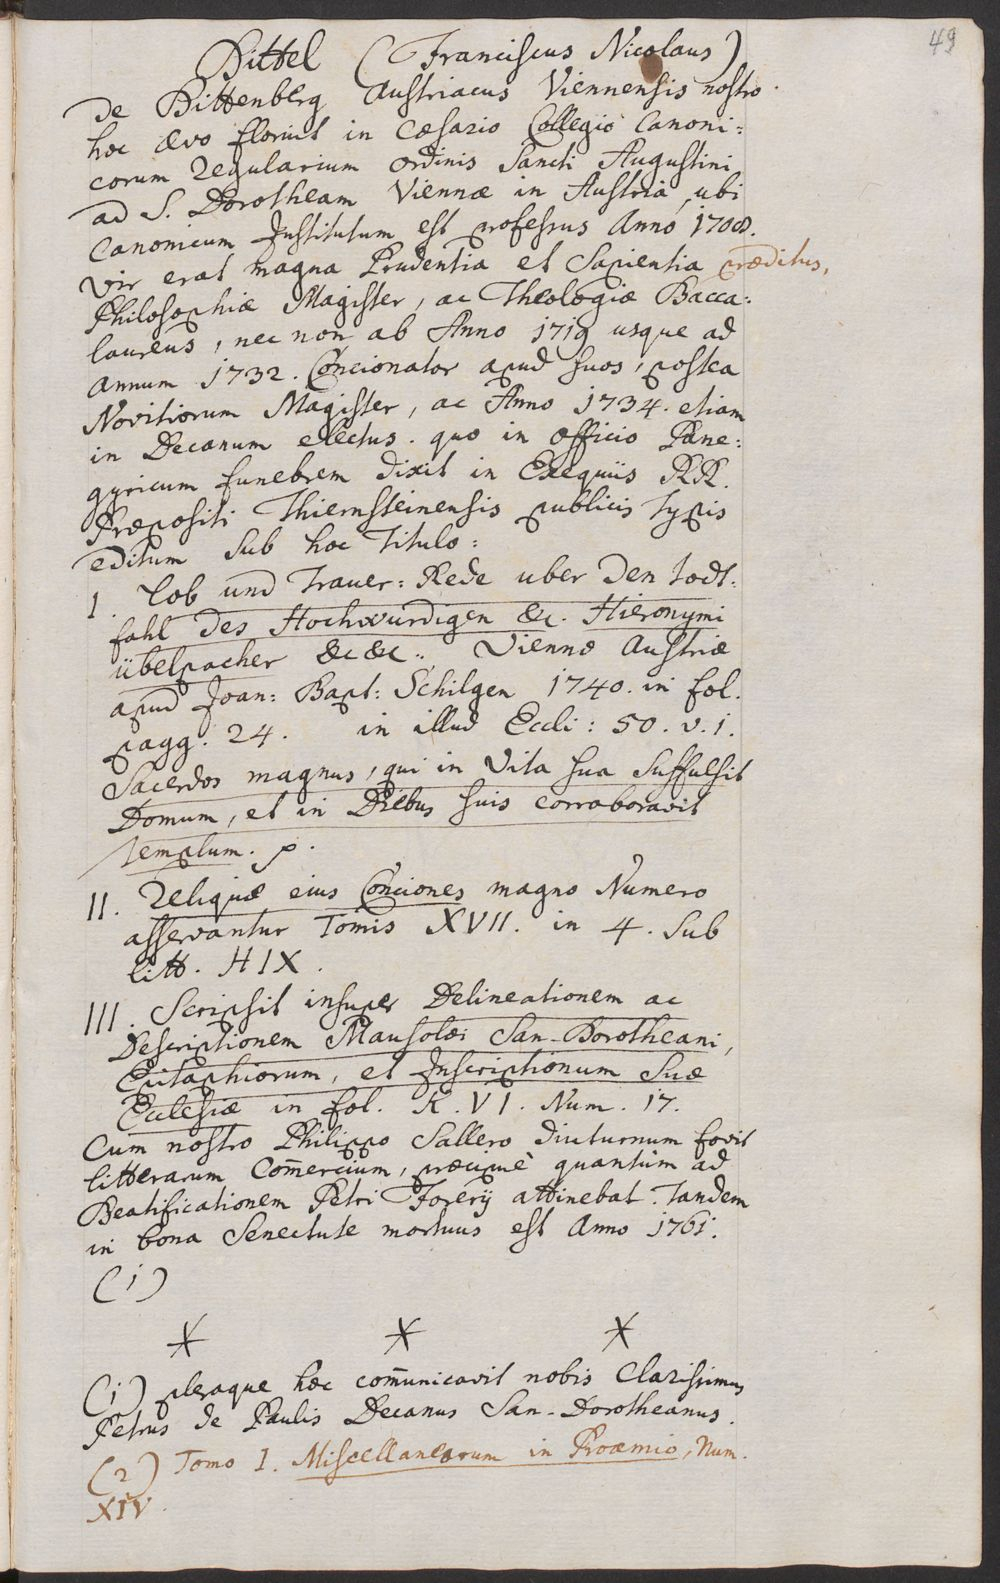 49
Bittel (Franciscus Nicolaus)
de Bittenberg Austriacus Viennensis nostro
hoc ævo floruit in Cæsareo Collegio Canoni=
corum Regularium ordinis Sancti Augustini
ad S. Dorotheam Viennæ in Austria, ubi
Canonicum Institutum est professus Anno 1708.
Vir erat magna Prudentia et Sapientia præditus,
Philosophiæ Magister, ac Theologiæ Bacca=
laureus, nec non ab Anno 1719 usque ad
annum 1732. Concionator apud suos, postea
Novitiorum Magister, ac Anno 1734. etiam
in Decanum electus. quo in officio Pane=
gyricum funebrem dixit in Exequiis RR.
Præpositi Thiernsteinensis publicis Typis
editum sub hoc Titulo:
I. Lob und Trauer=Rede uber den todt=
fahl des Hochwurdigen &c. Hieronymi
übelpacher &c &c. Viennæ Austriæ
apud Joan: Bapt: Schilgen 1740. in fol.
pagg. 24. in illud Eccli: 50. v. 1.
Sacerdos magnus, qui in Vita sua suffulsit
Domum, et in Diebus suis corroboravit
templum. p.
II. Reliquæ eius Conciones magno Numero
asservantur Tomis XVII. in 4. sub
litt. H IX.
III. Scripsit insuper Delineationem ac
Descriptionem Mausolæi San-Dorotheani,
Epitaphiorum, et Inscriptionum suæ
Ecclesiæ in fol. K. VI. Num. 17.
Cum nostro Philippo Sallero diuturnum fovit
litterarum Com̄ercium, præcipuè quantùm ad
Beatificationem Petri Forerij attinebat. Tandem
in bona Senectute mortuus est Anno 1761.
(1)
(1) pleraque hæc com̄unicavit nobis Clarissimus
Petrus de Paulis Decanus San-Dorotheanus.
(2) Tomo I. Miscellaneorum in Proæmio, Num.
XIV.